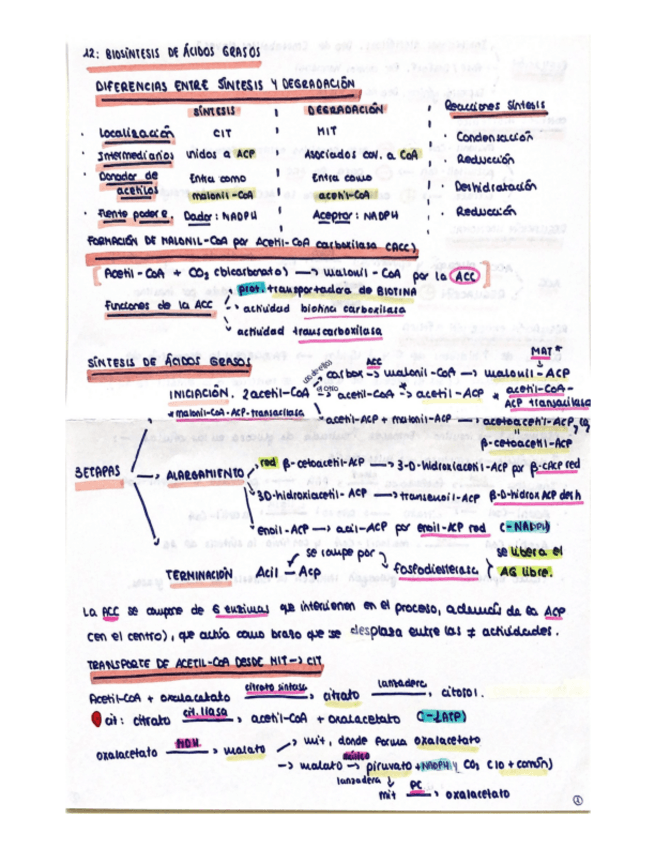 12: BIOSÍNTESIS DE ÁCIDOS GRASOS
DIFERENCIAS ENTRE SÍNTESIS Y DEGRADACIÓN
SÍNTESIS DEGRADACIÓN Reacciones Síntesis
· Localización CIT MIT · Condensación
· Intermediarios unidos a ACP Asociados cov. a CoA · Reducción
· Donador de acetilos Entra como malonil-CoA Entra como acetil-CoA · Deshidratación
· Fuente poder e. Dador: NADPH Aceptor: NADPH · Reducción
FORMACIÓN DE MALONIL-CoA por Acetil-CoA carboxilasa (ACC)
[Acetil-CoA + CO2 (bicarbonato) → malonil-CoA por la ACC]
Funciones de la ACC
prot. transportadora de BIOTINA
actividad biotina carboxilasa
actividad transcarboxilasa
SÍNTESIS DE ÁCIDOS GRASOS
3 ETAPAS
INICIACIÓN. 2 acetil-CoA
carbox → malonil-CoA → malonil-ACP
ACC MAT*
el otro → acetil-CoA → acetil-ACP * acetil-CoA-ACP transacilasa
* malonil-CoA-ACP-transacilasa
acetil-ACP + malonil-ACP → acetoacetil-ACP,
β-cetoacetil-ACP
→ ALARGAMIENTO
red β-cetoacetil-ACP → 3-D-Hidroxiacetil-ACP por β-cACP red
3D-hidroxiacetil-ACP → transenoil-ACP β-D-hidrox ACP desh
enoil-ACP → acil-ACP por enoil-ACP red (-NADPH)
TERMINACIÓN Acil-Acp se rompe por fosfodiesterasa { se libera el AG libre.
La ACC se compone de 6 enzimas que intervienen en el proceso, además de la ACP
(en el centro), que actúa como brazo que se desplaza entre las ≠ actividades.
TRANSPORTE DE ACETIL-CoA DESDE MIT → CIT
Acetil-CoA + oxalacetato citrato sintasa → citrato lanzadera → citosol.
cit: citrato cit. liasa → acetil-CoA + oxalacetato (-1ATP)
oxalacetato MDH → malato
→ mit, donde forma oxalacetato
→ malato málico → piruvato + NADPH y CO2 (lo + común)
lanzadera ↓
mit PC → oxalacetato
1